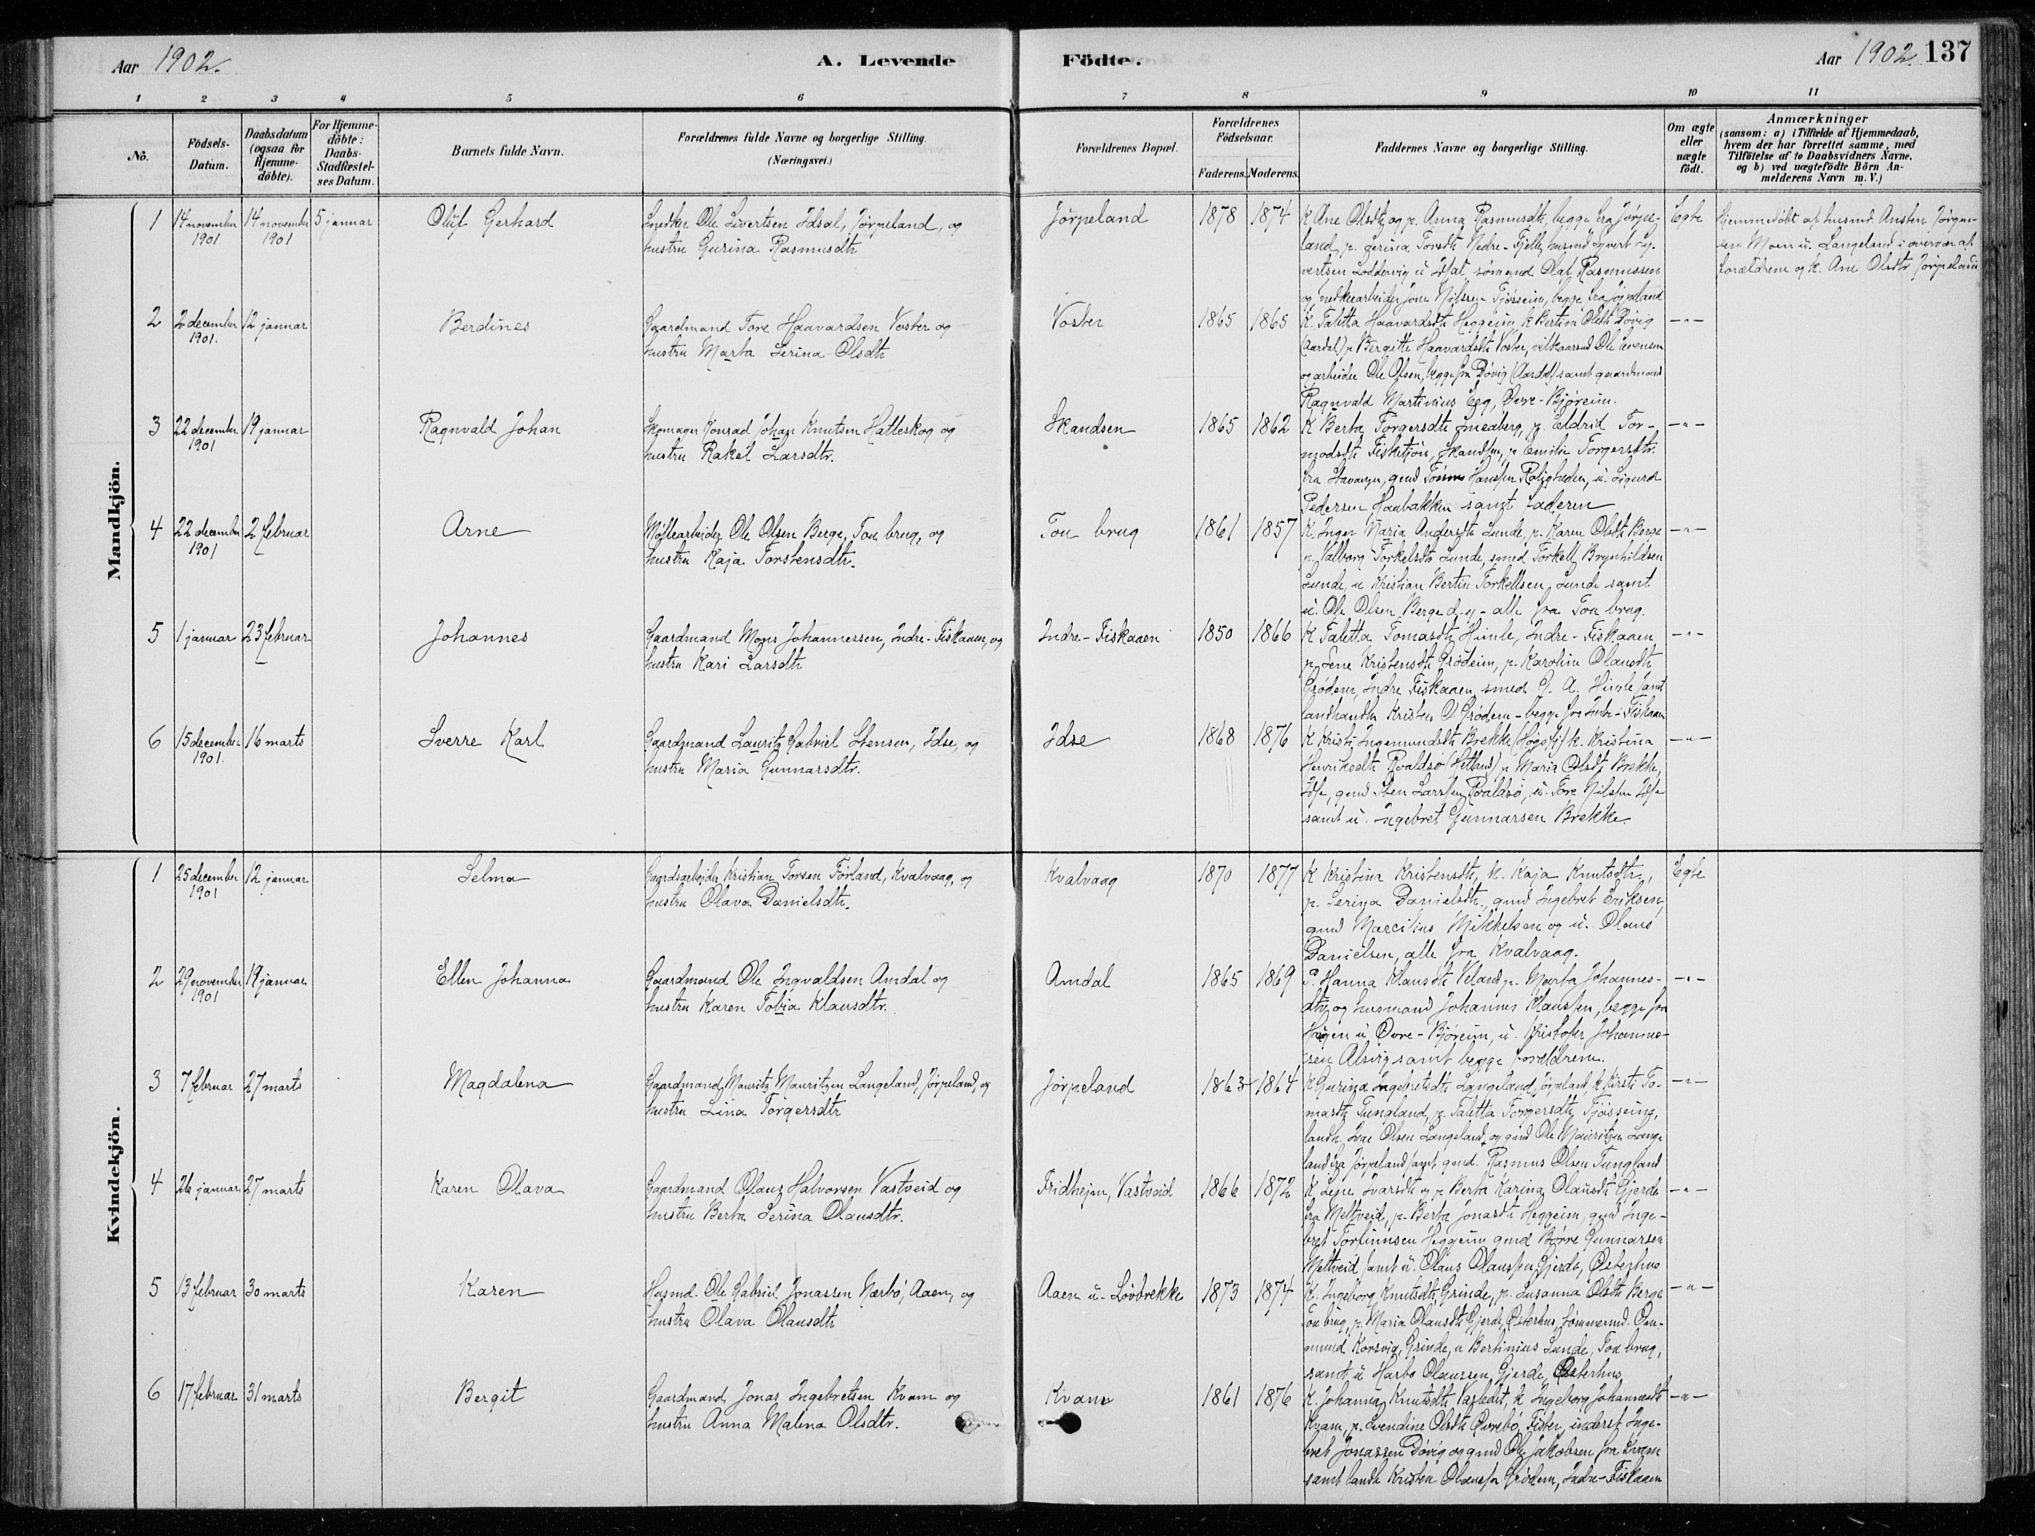 Aar 1902.
A. Levende
Födte.
Aar 1902. 137
1 2 3 4 5 6 7 8 9 10 11
No.
Födsels-Datum.
Daabsdatum (ogsaa for Hjemme-döbte).
For Hjemme-döbte: Daabs-Stadfæstel-ses Datum.
Barnets fulde Navn.
Forældrenes fulde Navne og borgerlige Stilling.
(Næringsvei.)
Forældrenes Bopæl.
Forældrenes Födselsaar.
Faderens. Moderens.
Faddernes Navne og borgerlige Stilling.
Om ægte eller uægte födt.
Anmærkninger
(saasom: a) i Tilfælde af Hjemmedaab, hvem der har forrettet samme, med Tilföielse af to Daabsvidners Navne, og b) ved uægtefödte Börn An-melderens Navn m. V.)
Mandkjön.
1 14 november 1901 14 november 1901 5 januar Oluf Gerhard
Snedker Ole Sivertsen Idsal, Jörpeland, og
hustru Gurina Rasmusdtr
Jörpeland 1878 1874
K Ane Olsdtr og p. Anna Rasmusdtr, begge fra Jörpe-
land, p. Gerina Torsdtr Nedre-Fjelle, husmd Syvert Sy-
vertsen Loddervig u. Idsal, sömand Olaf Rasmussen
Egte
Hjemmedöbt af husmd Austen Jörgen-
sen Moen u. Langeland i overvær af
forældrene og k. Ane Olsdtr Jörpeland
2 2 december 1901. 12 januar Berdines
Gaardmand Tore Haavardsen Voster og
hustru Marta Serina Olsdtr
Voster 1865 1865
K. Taletta Haavardsdtr Heggeim, k Bertine Olsdtr Dövig
(Aardal) p Bergitte Haavardsdtr Voster, vilkaarsmd Ole Evensen
og arbeider Ole Olsen, begge fra Dövig (Aardal) samt gaardmand
Ragnvald Martinius Egg, Övre-Björeim.
—"—
3 22 december 1901 19 januar Ragnvald Johan
Skomager Konrad Johan Knutsen Hatleskog og
hustru Rakel Larsdtr.
Skandsen 1865 1862
K Berta Torgersdtr Smedberg, p. Eldrid Tor-
modsdtr Fisketjön, Skandsen, p Emilie Torgersdtr.
fra Stavanger, gmd Tönnes Hanssen Roligheden, u. Sigurd
Pedersen Haabakken samt faderen
—"—
4 22 december 1901 2 februar Arne
Möllearbeider Ole Olsen Berge, Tou brug, og
hustru Kaja Torstensdtr.
Tou brug 1861 1857
K. Inger Maria Andersdtr Lunde, p. Karen Olsdtr Berge
p. Valborg Torkelsdtr Lunde, smed Torkell Brynhildsen
Lunde, u Kristian Bertin Torkellsen Lunde samt
u. Ole Olsen Berge d. y - alle fra Tou brug.
—"—
5 1 januar 23 februar Johannes
Gaardmand Mons Johannessen, Indre-Fiskaaen, og
hustru Kari Larsdtr
Indre-Fiskaaen 1850 1866
K Taletta Tomasdtr Himle, Indre-Fiskaaen,
p. Lene Kristensdtr Grödeim, p. Karoline Olausdtr
Grödem, Indre Fiskaaen, smed G. A. Himle samt
landhandler Kristen O Grödem - begge fra Indre-Fiskaaen
—"—
6 15 december 1901. 16 marts Sverre Karl
Gaardmand Lauritz Gabriel Stensen, Idse, og
hustru Maria Gunnarsdtr.
Idse 1868 1876
K Kristi Ingemundsdtr Brekke (Högsfj) k. Kristina
Henriksdtr Roaldsö (Hetland) p Maria Olsdtr Brekke,
Idse, gmd Sten Larssen Roaldsö, u. Tore Nilsen Idse
samt u. Ingebret Gunnarsen Brekke.
—"—
Kvindekjön.
1 25 december 1901 12 januar Selma
Gaardsarbeider Kristian Torsen Förland, Kvalvaag, og
hustru Olava Danielsdtr.
Kvalvaag 1870 1877
K Kristine Kristensdtr, k. Kaja Knutsdtr,
p. Serina Danielsdtr, gmd Ingebret Eriksen,
gmd Marcelius Mikkelsen og u. Olaus
Danielsen, alle fra Kvalvaag.
Egte
2 29 november 1901 19 januar Ellen Johanna
Gaardmand Ole Ingvaldsen Amdal og
hustru Karen Tobia Klausdtr.
Amdal 1865 1869
P. Hanna Klausdtr Veland p. Marta Johannes-
dtr og husmand Johannes Klaussen, begge fra
Hagen u Övre-Björeim, u. Kristofer Johannes-
sen Alsvig samt begge forældrene.
—"—
3 7 februar 27 marts Magdalena
Gaardmand Mauritz Mauritzen Langeland, Jörpeland, og
hustru Lina Torgersdtr
Jörpeland 1863 1864
K Gurina Ingebretsdtr Langeland, Jörpeland, k. Kirsti To-
masdtr Tungland, p. Taletta Torgersdtr Tjösseim,
landh. Ivar Olsen Langeland, og gmd Ole Mauritzen Lange
land fra Jörpeland samt gmd. Rasmus Olsen Tungland
—"—
4 26 januar 27 marts Karen Olava
Gaardmand Olaus Halvorsen Vastveid og
hustru Berta Serina Olausdtr.
Fridhejm, Vastveid 1866 1872
K Signe Ivarsdtr og p. Berta Karina Olausdtr Gjerde
fra Meltveid, p. Berta Jonasdtr Heggeim, gmd Inge-
bret Torfinnsen Heggeim gmd Börre Gunnarsen
Meltveid samt u. Olaus Olaussen Gjerde, Österhus
—"—
5 13 februar 30 marts Karen
Husmd. Ole Gabriel Jonassen Nærbö, Aaen, og
hustru Olava Olausdtr
Aaen u. Lövbrekke 1873 1874
K. Ingeborg Knutsdtr Grinde, p. Susanna Olsdtr Berge
Tou brug, p. Maria Olausdtr Gjerde, Österhus, tömmermd. Om-
mund Korsvig, Grinde, u Bertinius Lunde, Tou brug,
samt u Harbo Olaussen Gjerde, Österhus
—"—
6 17 februar 31 marts Bergit
Gaardmand Jonas Ingebretsen Kvam og
hustru Anna Malena Olsdtr.
Kvam 1861 1876
K. Johanna Knutsdtr Vastedt, k Ingeborg Johannesdtr
Kvam, p. Svendine Olsdtr Övrebö, Fister, inderst Inge-
bret Jonassen Dövig og gmd Ole Jakobsen fra Kvam
samt landh Kristen Olaussen Grödem, Indre-Fiskaaen
—"—